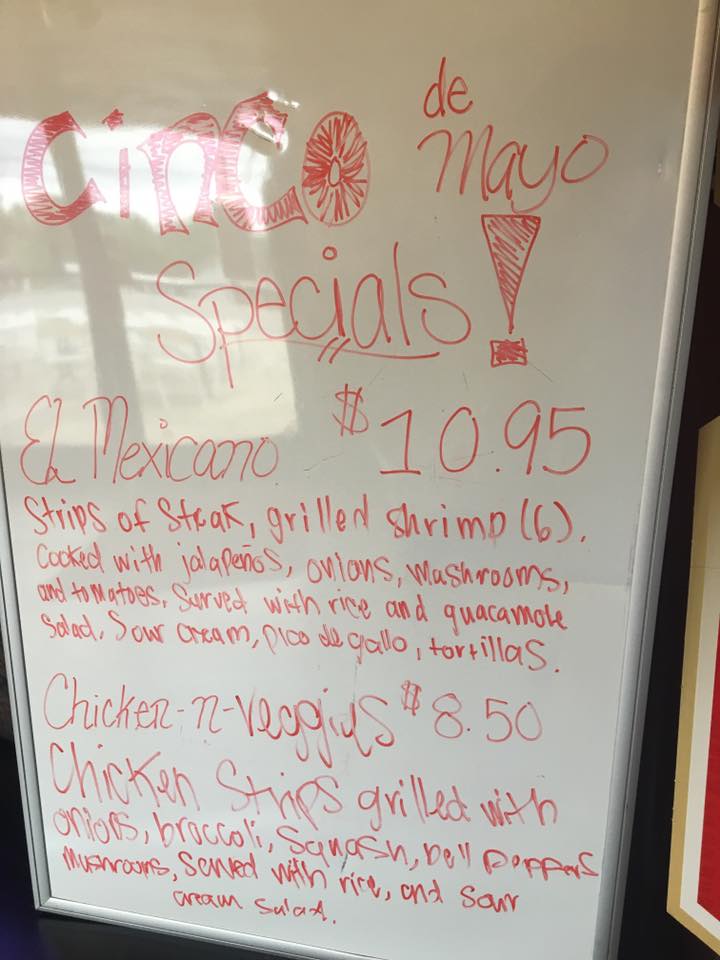 Cinco de Mayo!
Specials
El Mexicano $10.95
Strips of Steak, grilled shrimp (6).
Cooked with jalapeños, onions, mushrooms,
and tomatoes. Surved with rice and guacamole
Salad. Sour cream, pico de gallo, tortillas.
Chicken-n-Veggiys $8.50
Chicken Strips grilled with
onions, broccoli, Squash, bell peppers
mushrooms, Served with rice, and Sour
cream Salad.